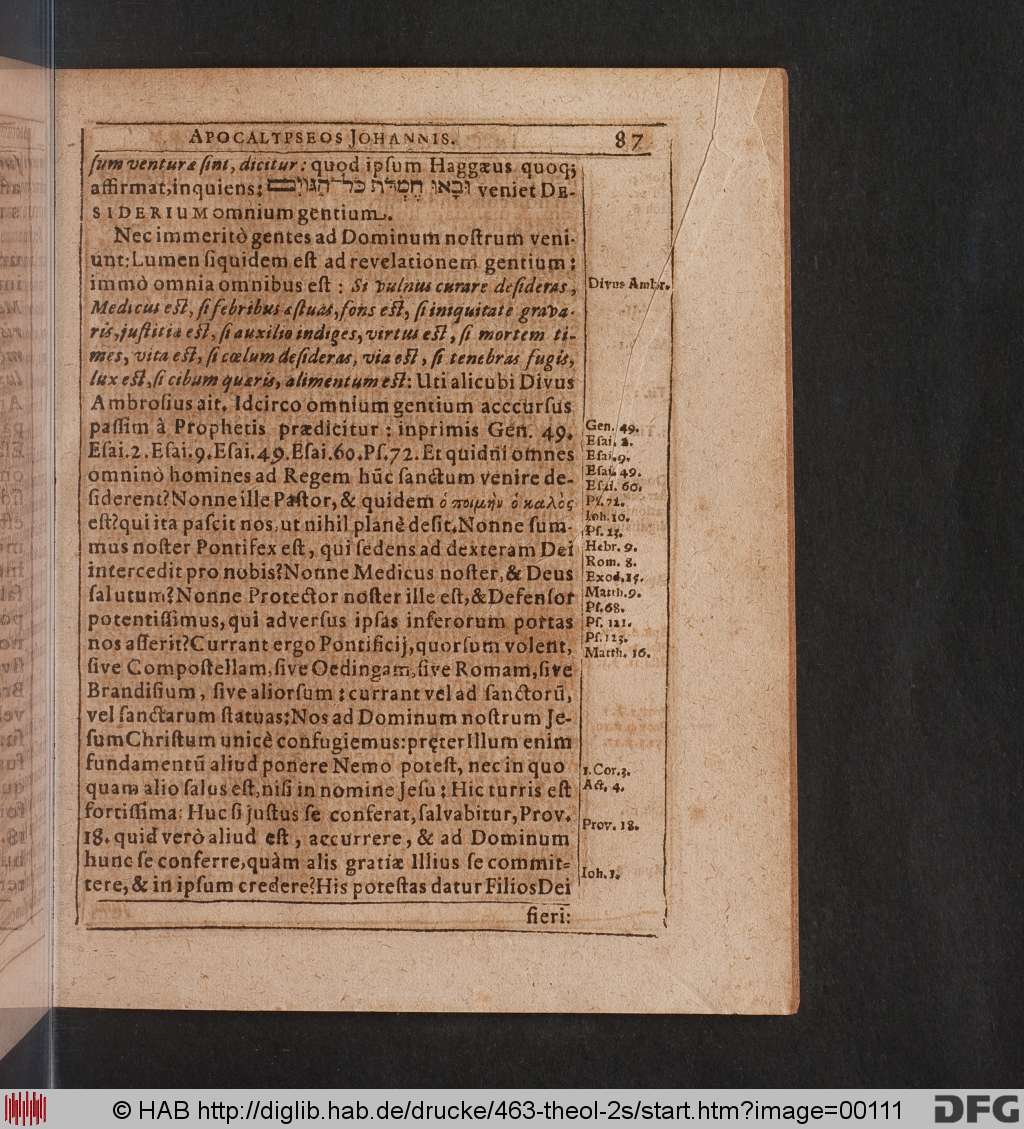 APOCALYPSEOS JOHANNIS. 87
ſum venturæ ſint, dicitur: quod ipſum Haggæus quoq;
affirmat, inquiens: וּבָאוּ חֶמְדַּת כָּל־הַגּוֹיִם veniet DE-
SIDERIUM omnium gentium.
Nec immeritò gentes ad Dominum noſtrum veni-
unt: Lumen ſiquidem eſt ad revelationem gentium:
immò omnia omnibus eſt: Si vulnus curare deſideras,
Medicus eſt, ſi febribus æſtuas, fons eſt, ſi iniquitate grava-
ris, juſtitia eſt, ſi auxilio indiges, virtus eſt, ſi mortem ti-
mes, vita eſt, ſi cœlum deſideras, via eſt, ſi tenebras fugis,
lux eſt, ſi cibum quæris, alimentum eſt: Uti alicubi Divus
Ambroſius ait. Idcirco omnium gentium acccurſus
paſſim à Prophetis prædicitur: inprimis Gen. 49.
Eſai. 2. Eſai. 9. Eſai. 49. Eſai. 60. Pſ. 72. Et quidni omnes
omninò homines ad Regem hũc ſanctum venire de-
ſiderent? Nonne ille Paſtor, & quidem ὁ ποιμὴν ὁ καλὸς
eſt? qui ita paſcit nos, ut nihil planè deſit. Nonne ſum-
mus noſter Pontifex eſt, qui ſedens ad dexteram Dei
intercedit pro nobis? Nonne Medicus noſter, & Deus
ſalutum? Nonne Protector noſter ille eſt, & Defenſor
potentiſſimus, qui adverſus ipſas inferorum portas
nos aſſerit? Currant ergo Pontificij, quorſum volent,
ſive Compoſtellam, ſive Oedingam, ſive Romam, ſive
Brandiſium, ſive aliorſum: currant vel ad ſanctorũ,
vel ſanctarum ſtatuas: Nos ad Dominum noſtrum Je-
ſum Chriſtum unicè confugiemus: pręter Illum enim
fundamentũ aliud ponere Nemo poteſt, nec in quo
quam alio ſalus eſt, niſi in nomine Jeſu: Hic turris eſt
fortiſſima: Huc ſi juſtus ſe conferat, ſalvabitur, Prov.
18. quid verò aliud eſt, accurrere, & ad Dominum
hunc ſe conferre, quàm alis gratiæ Illius ſe commit-
tere, & in ipſum credere? His poteſtas datur Filios Dei
fieri:
Divus Ambr.
Gen. 49.
Eſai. 2.
Eſai. 9.
Eſai. 49.
Eſai. 60.
Pſ. 72.
Ioh. 10.
Pſ. 23.
Hebr. 9.
Rom. 8.
Exod. 15.
Matth. 9.
Pſ. 68.
Pſ. 121.
Pſ. 125.
Matth. 16.
1. Cor. 3.
Act. 4.
Prov. 18.
Ioh. 1.
© HAB http://diglib.hab.de/drucke/463-theol-2s/start.htm?image=00111 DFG